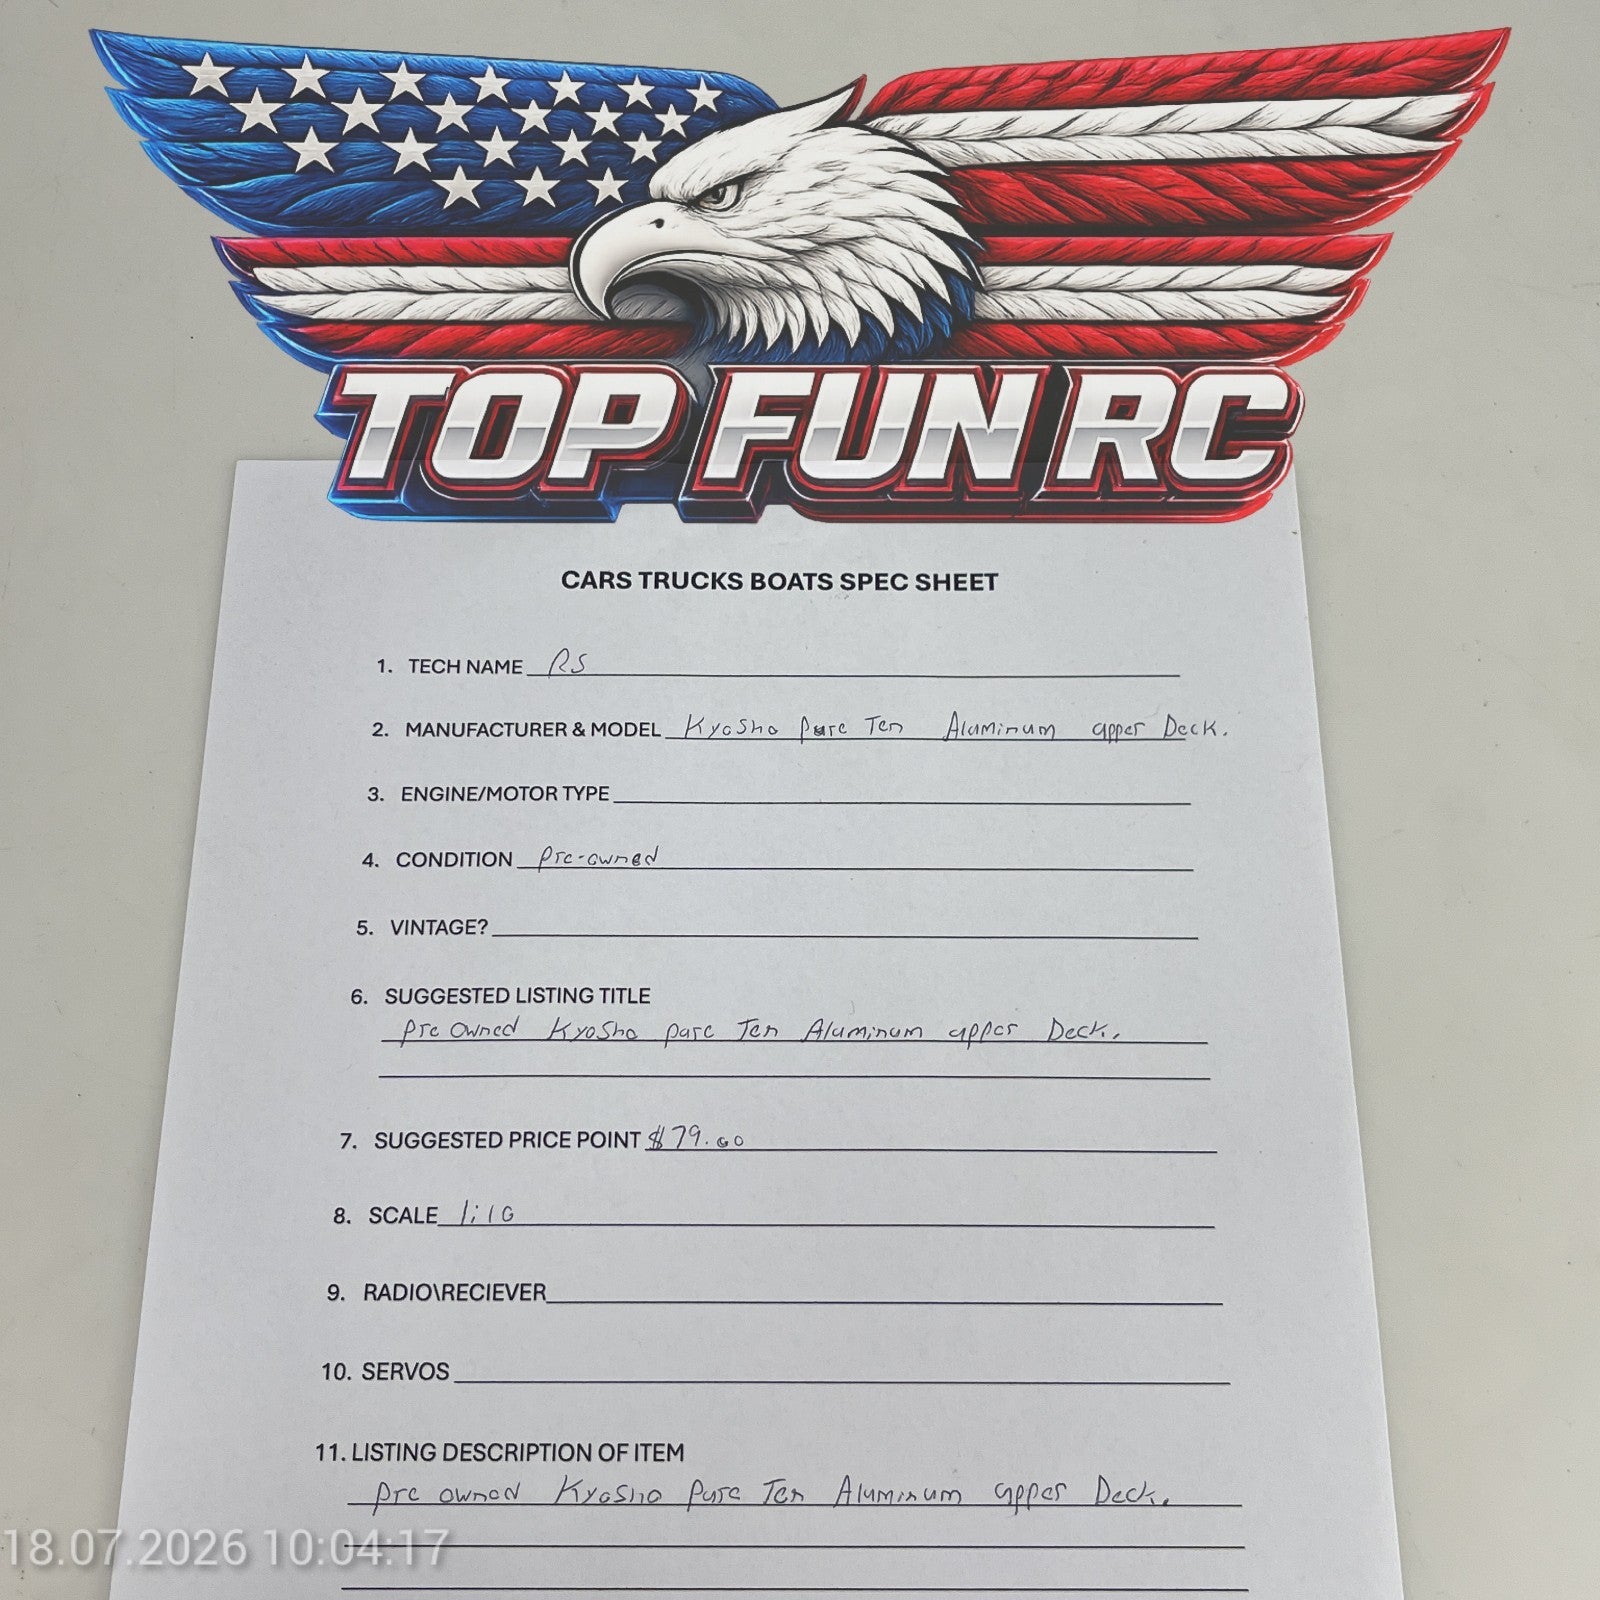 TOP FUN RC
CARS TRUCKS BOATS SPEC SHEET
1. TECH NAME RS
2. MANUFACTURER & MODEL Kyosho Pure Ten Aluminum upper Deck.
3. ENGINE/MOTOR TYPE
4. CONDITION Pre-owned
5. VINTAGE?
6. SUGGESTED LISTING TITLE
Pre Owned Kyosho pure Ten Aluminum upper Deck.
7. SUGGESTED PRICE POINT $79.00
8. SCALE 1:10
9. RADIO\RECIEVER
10. SERVOS
11. LISTING DESCRIPTION OF ITEM
Pre owned Kyosho Pure Ten Aluminum upper Deck.
18.07.2026 10:04:17